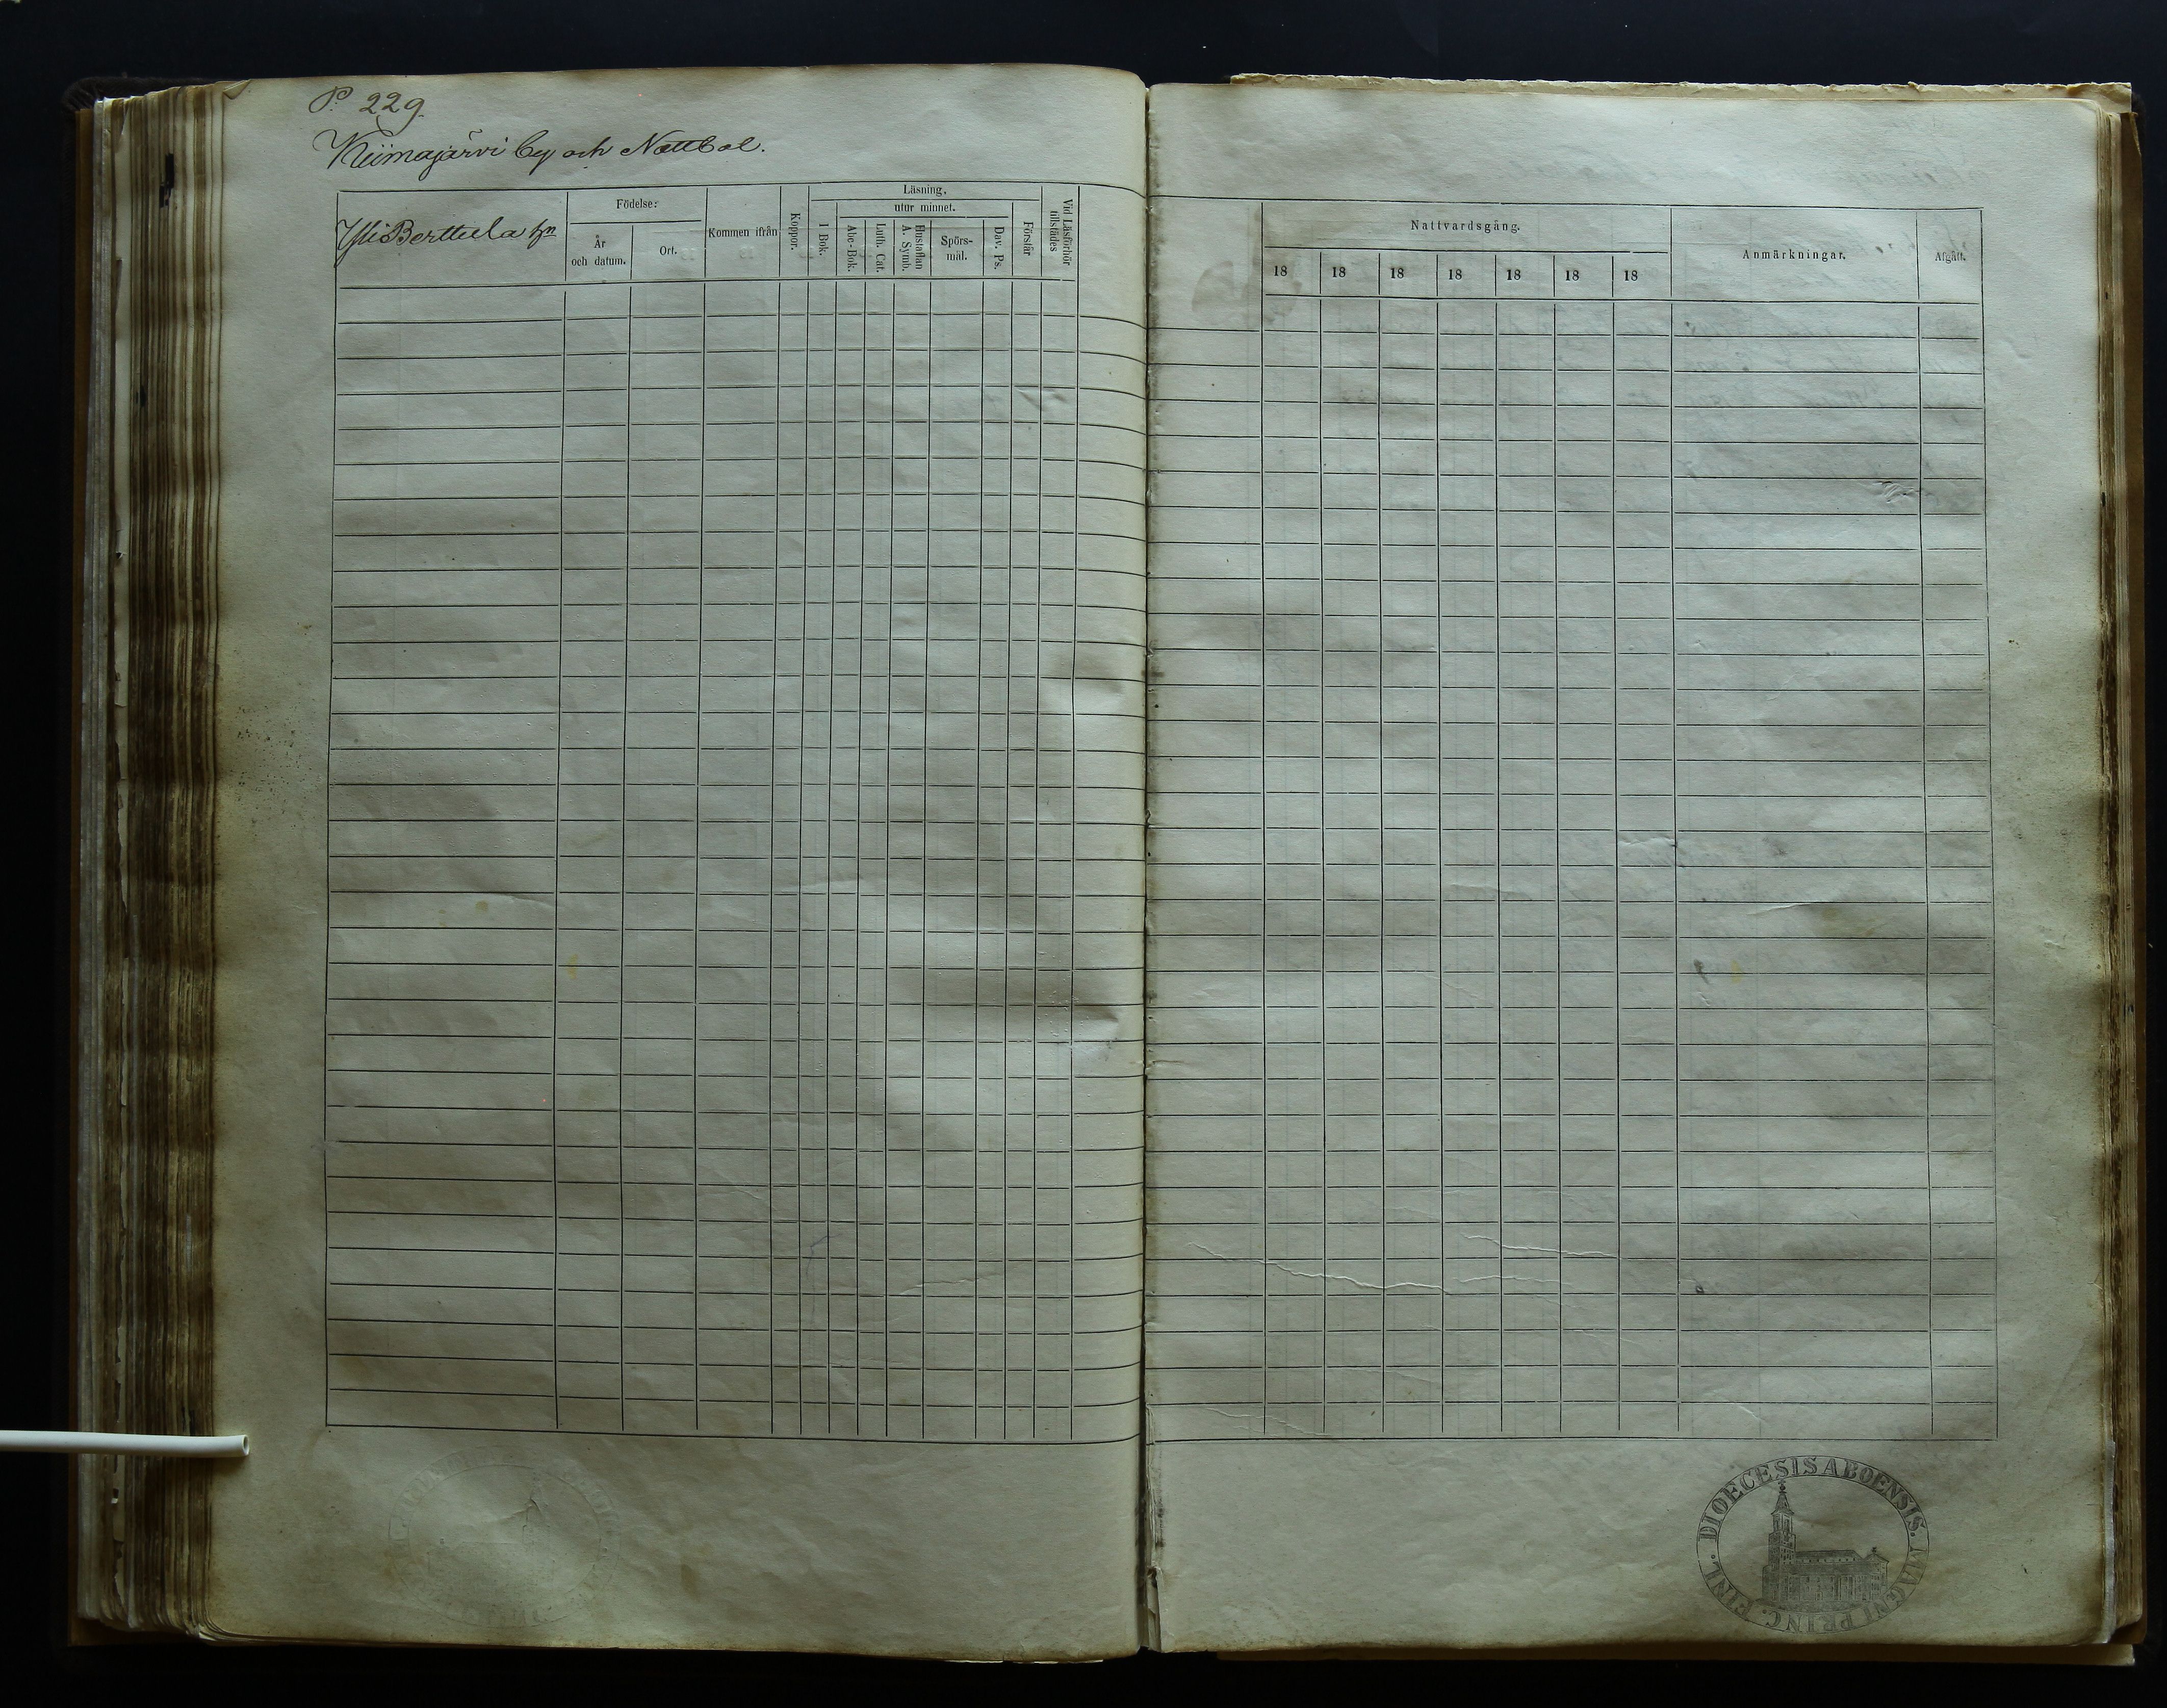 P: 229.
Kiimajärvi by och Nattbol.
YliBerttula hn
Födelse:
År
och datum.
Ort.
Kommen ifrån
Koppor.
Läsning,
I Bok.
utur minnet.
Abc-Bok.
Luth. Cat.
Hustaflan
A. Symb.
Spörs-
mål.
Dav. Ps.
Förslår
Vid Läsförhör
tillstädes
Nattvardsgång.
18 18 18 18 18 18 18
Anmärkningar.
Afgått.
DIOECESIS ABOENSIS. MAGNI PRINC. FINL.